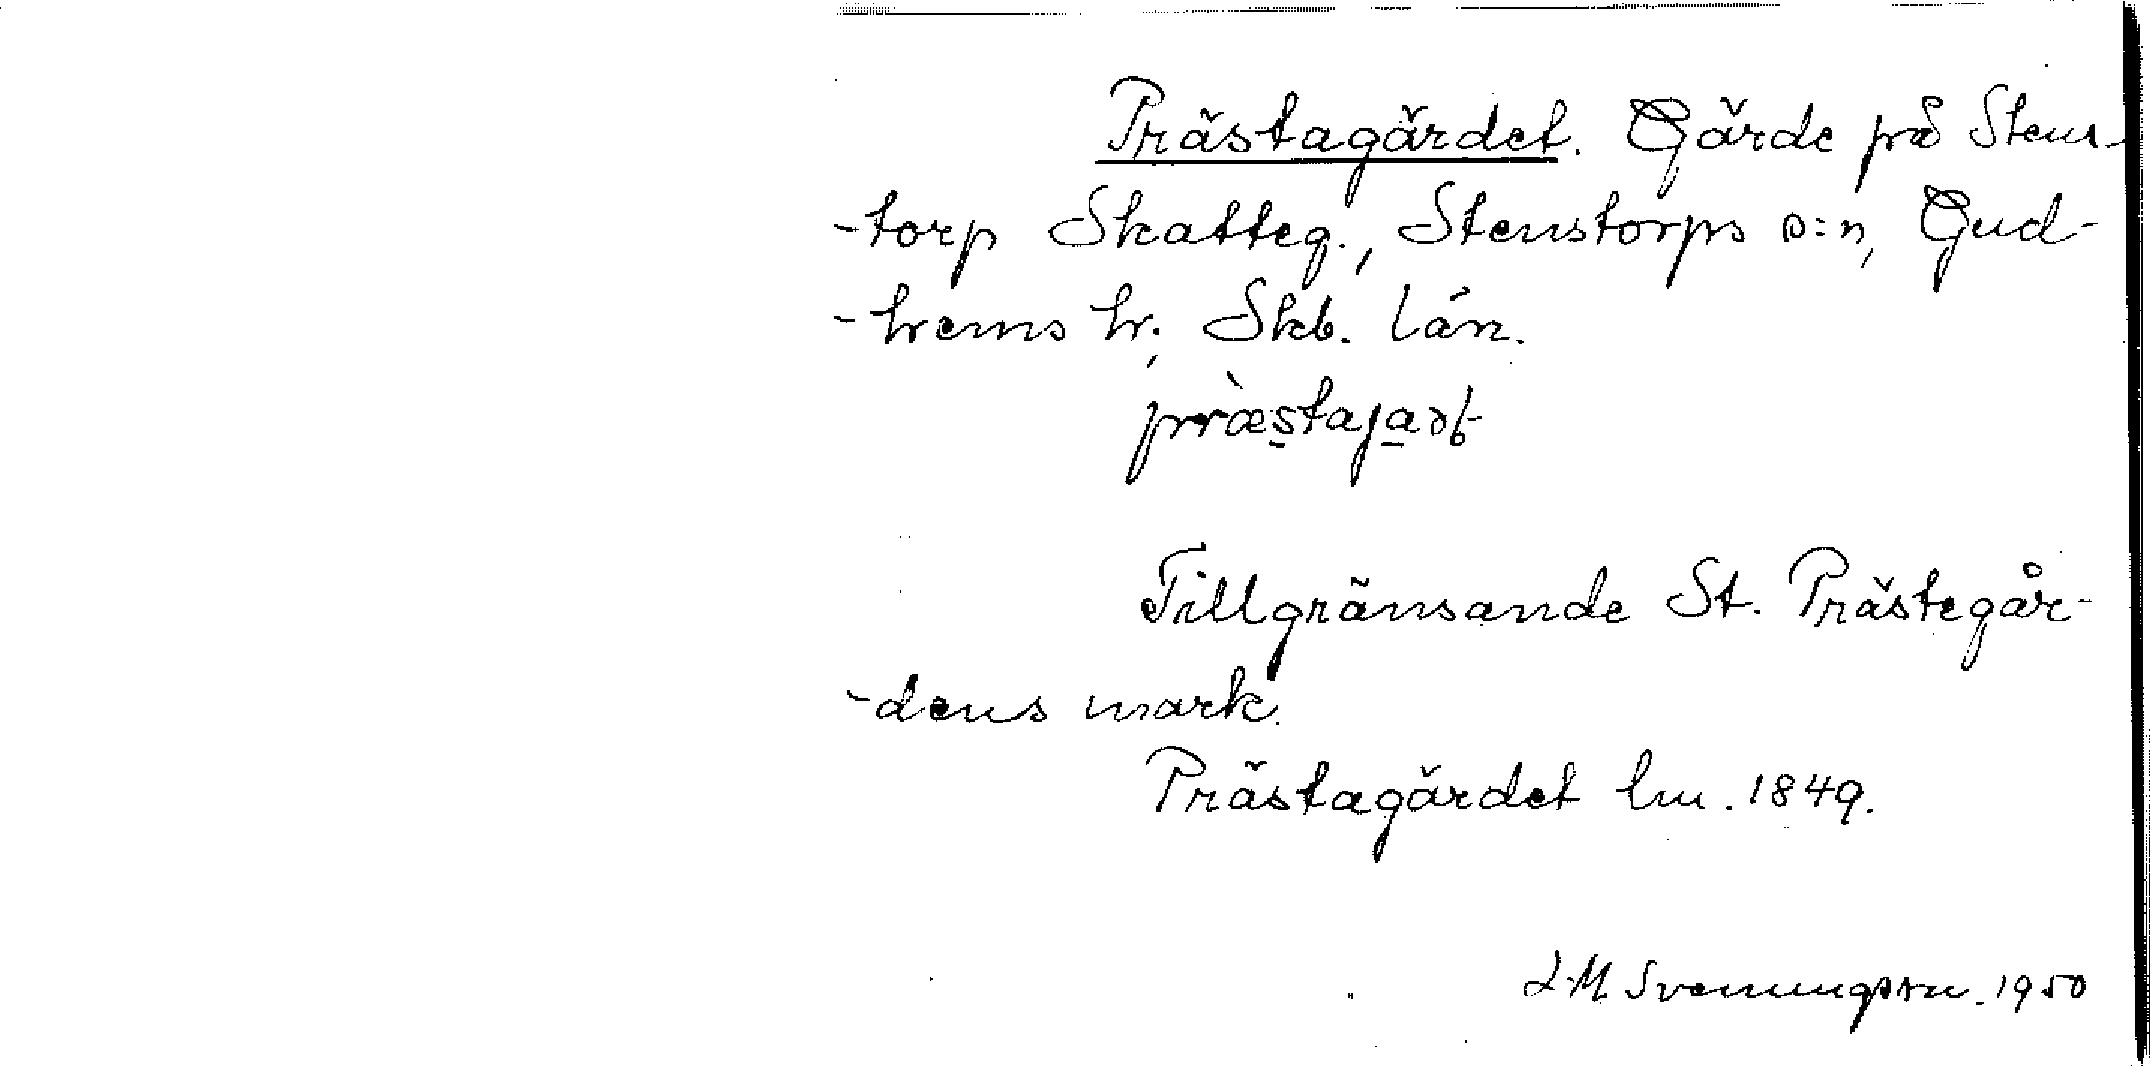 Prästagärdet. Gärde på Stens-
-torp Skatteg., Stenstorps s:n, Gud-
-hems hr, Skb. län.
Tillgränsande St. Prästegår-
-dens mark.
Prästagärdet lm. 1849.
L.M. Svenungsson. 1950